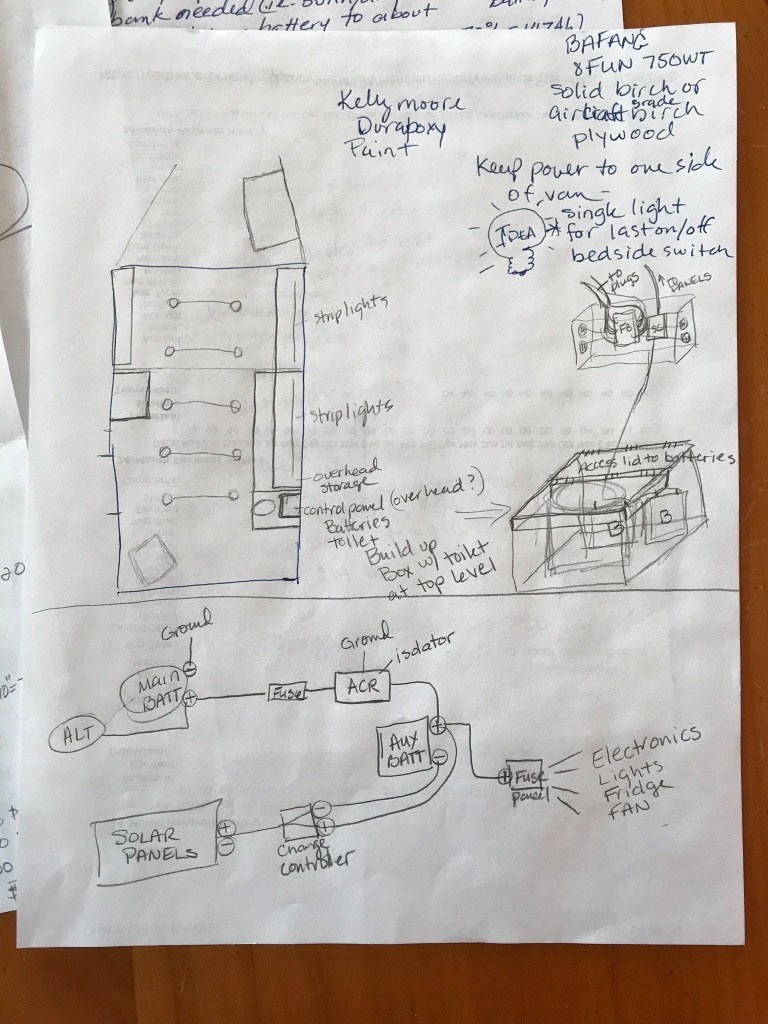 bank needed
battery to about
BAFANG
8FUN 750WT
solid birch or
aircraft grade birch
plywood
Kelly moore
Durapoxy
Paint
Keep power to one side
of van -
IDEA
* single light
for last on/off
bedside switch
to plugs
to PANELS
FB
SC
strip lights
strip lights
overhead
storage
control panel (overhead?)
Batteries
toilet
Build up
Box w/ toilet
at top level
Access lid to batteries
B
B
Ground
Main
BATT
ALT
Fuse
Ground
isolator
ACR
AUX
BATT
Fuse
panel
Electronics
Lights
Fridge
FAN
SOLAR
PANELS
Charge
controller